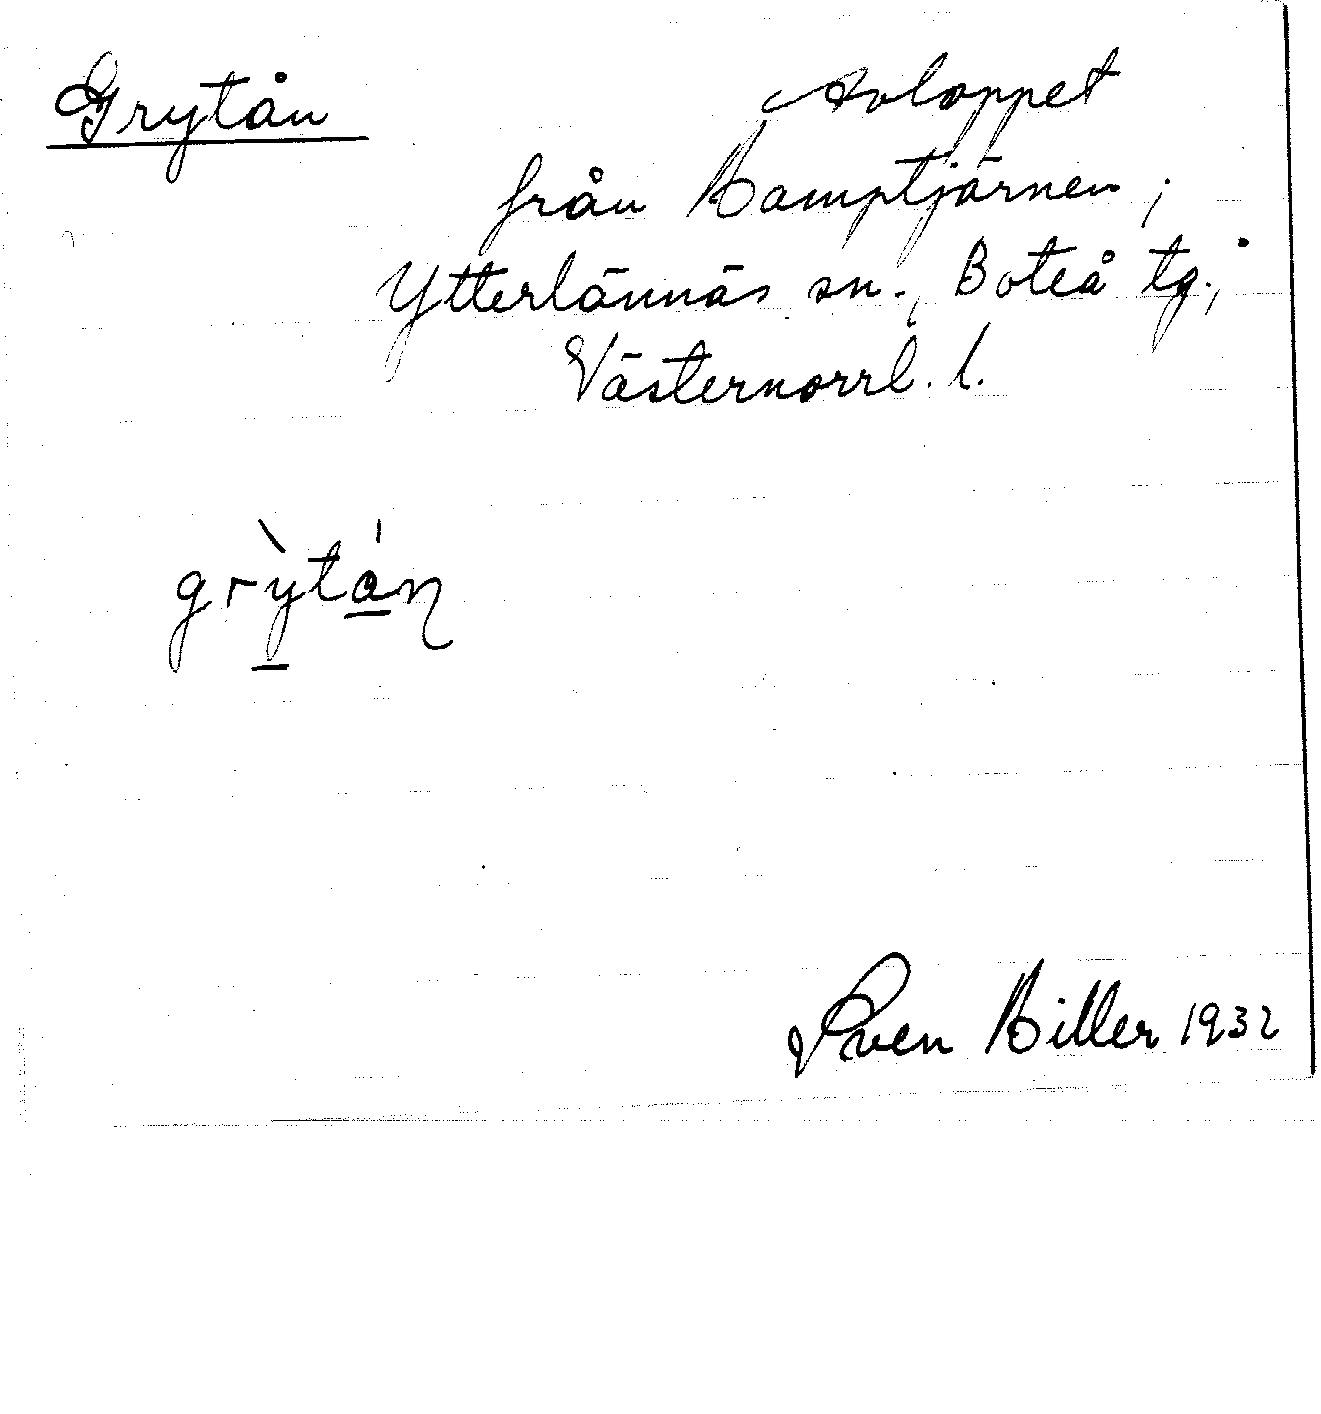 Grytån
Avloppet
från Kamptjärnen,
Ytterlännäs sn., Boteå tg.,
Västernorrl. l.
grỳtán
Sven Hiller 1932